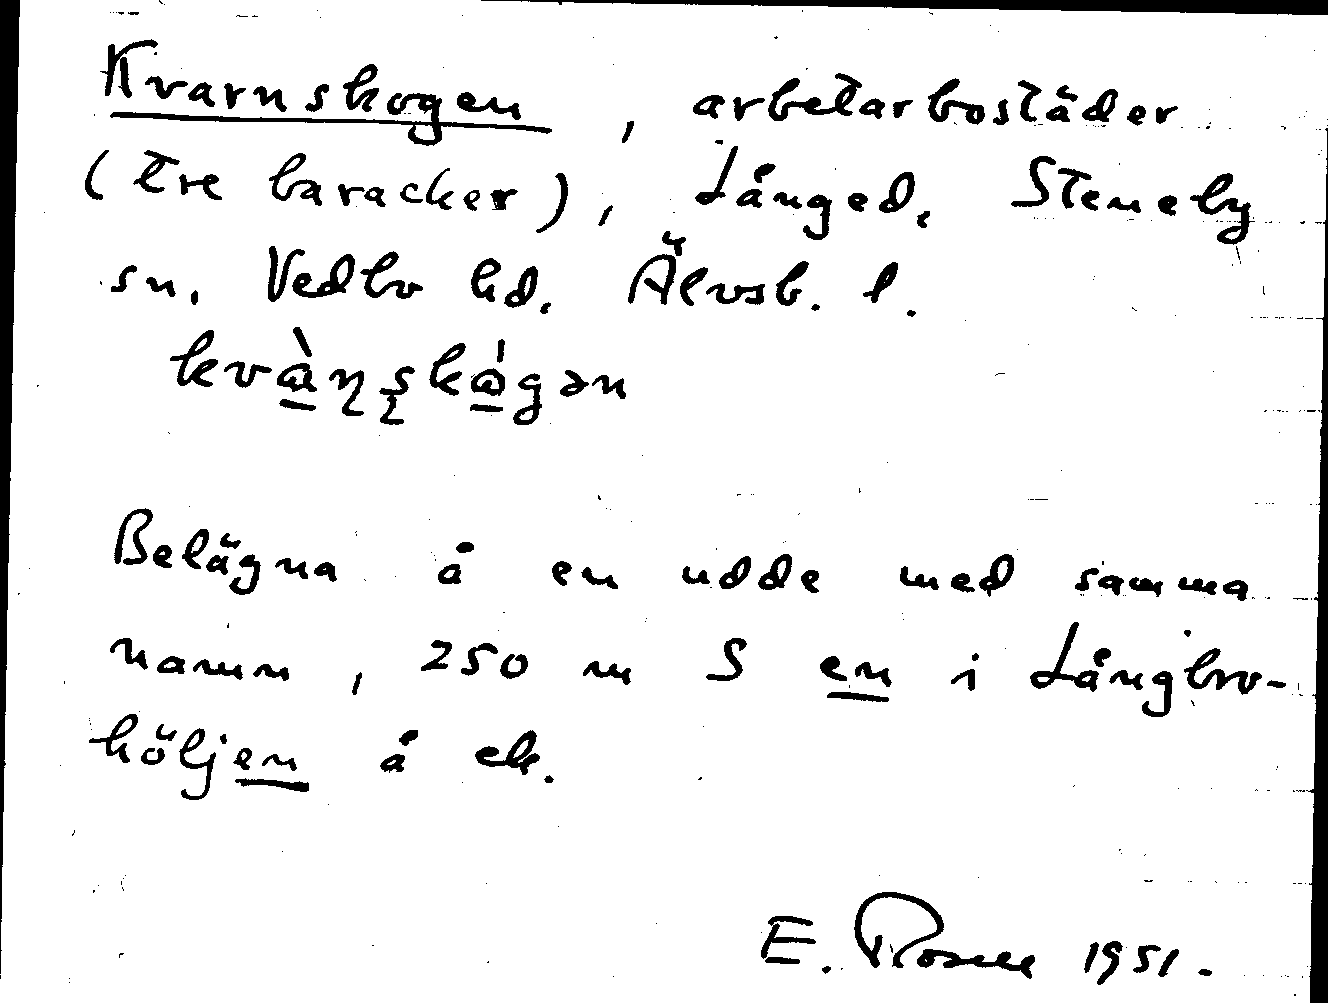 Kvarnskogen, arbetarbostäder
(tre baracker), Långed, Steneby
sn, Vedbo hd, Älvsb. l.
kvàɳʂkǻgən
Belägna å en udde med samma
namn, 250 m S en i Långbro-
höljen å ek.
E. Rosell 1951.